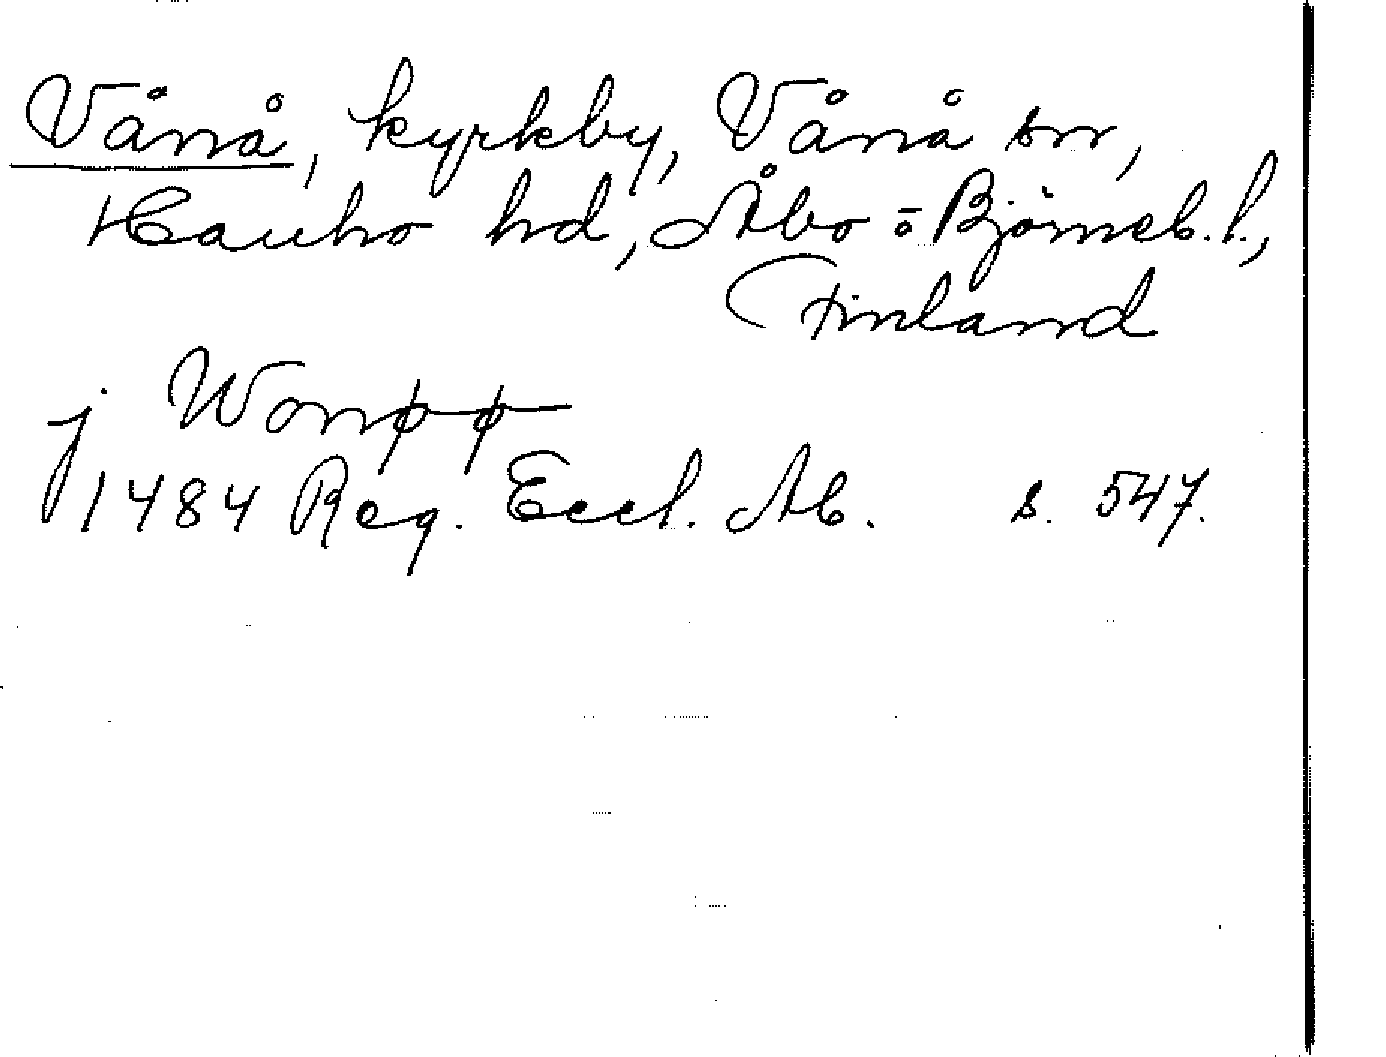 Vånå, kyrkby, Vånå sn,
Hauho hd, Åbo o Björneb. l.,
Finland
j Wonøø
1484 Reg. Eccl. Ab. s. 547.